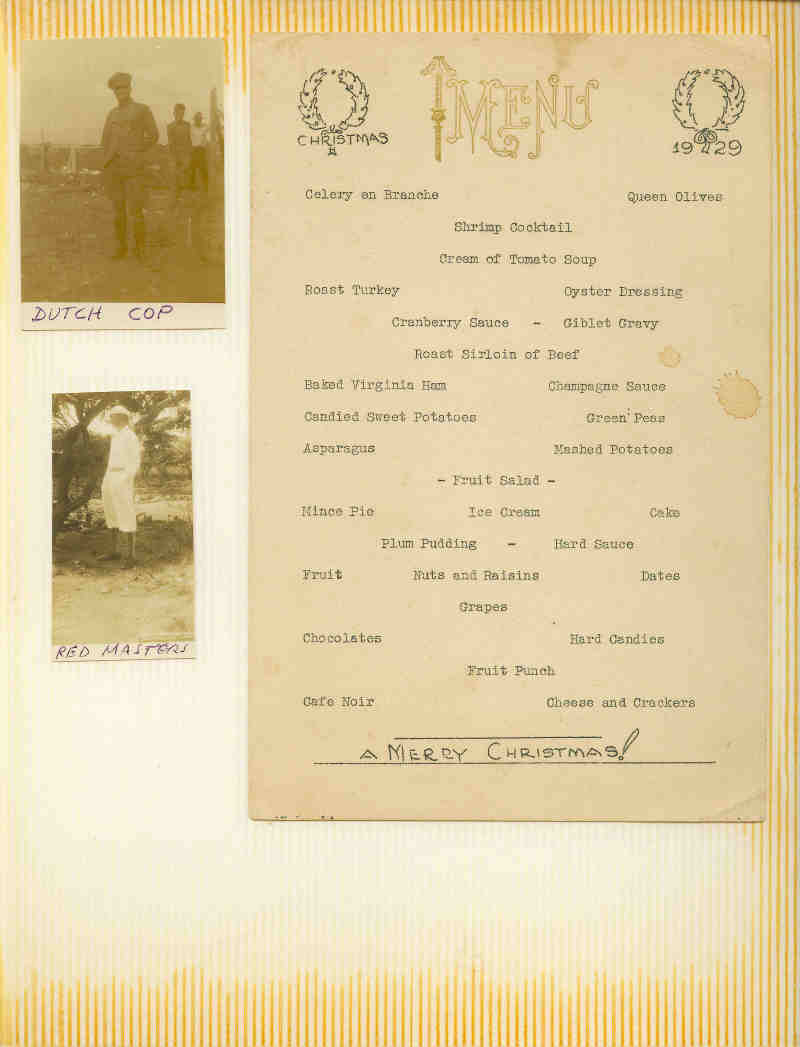 MENU
CHRISTMAS
1929
Celery en Branche Queen Olives
Shrimp Cocktail
Cream of Tomato Soup
Roast Turkey Oyster Dressing
Cranberry Sauce - Giblet Gravy
Roast Sirloin of Beef
Baked Virginia Ham Champagne Sauce
Candied Sweet Potatoes Green Peas
Asparagus Mashed Potatoes
- Fruit Salad -
Mince Pie Ice Cream Cake
Plum Pudding - Hard Sauce
Fruit Nuts and Raisins Dates
Grapes
Chocolates Hard Candies
Fruit Punch
Cafe Noir Cheese and Crackers
A MERRY CHRISTMAS!
DUTCH COP
RED MASTERS